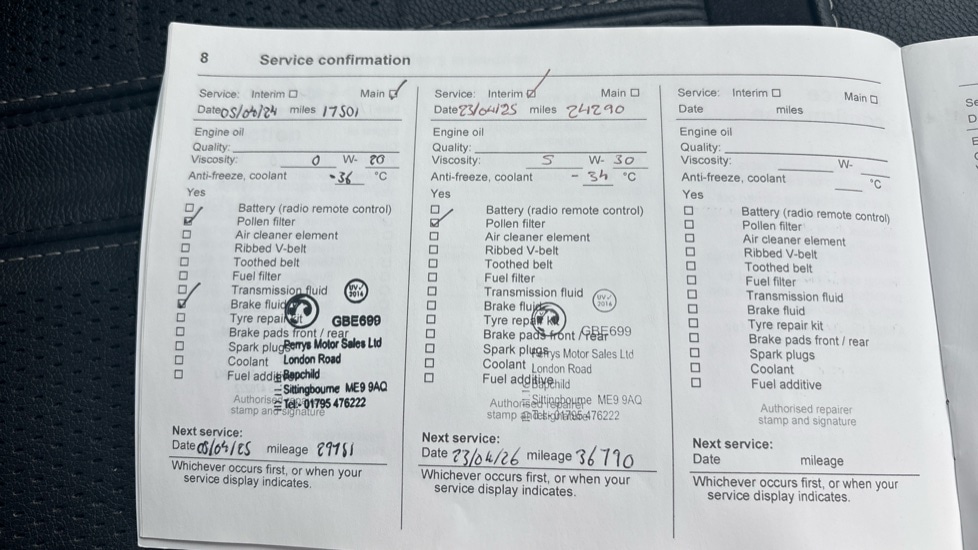 8 Service confirmation
Service: Interim ☐ Main ☑
Date 05/04/24 miles 17501
Engine oil
Quality:
Viscosity: 0 W- 20
Anti-freeze, coolant -36 °C
Yes
☐ Battery (radio remote control)
☑ Pollen filter
☐ Air cleaner element
☐ Ribbed V-belt
☐ Toothed belt
☐ Fuel filter
☐ Transmission fluid
☑ Brake fluid
☐ Tyre repair kit
☐ Brake pads front / rear
☐ Spark plugs
☐ Coolant
☐ Fuel additive
UV✓ 2016
GBE699
Perrys Motor Sales Ltd
London Road
Bapchild
Sittingbourne ME9 9AQ
Tel:- 01795 476222
Authorised repairer
stamp and signature
Next service:
Date 05/04/25 mileage 29751
Whichever occurs first, or when your
service display indicates.
Service: Interim ☑ Main ☐
Date 23/04/25 miles 24290
Engine oil
Quality:
Viscosity: 5 W- 30
Anti-freeze, coolant - 34 °C
Yes
☐ Battery (radio remote control)
☑ Pollen filter
☐ Air cleaner element
☐ Ribbed V-belt
☐ Toothed belt
☐ Fuel filter
☐ Transmission fluid
☐ Brake fluid
☐ Tyre repair kit
☐ Brake pads front / rear
☐ Spark plugs
☐ Coolant
☐ Fuel additive
UV✓ 2016
GBE699
Perrys Motor Sales Ltd
London Road
Bapchild
Sittingbourne ME9 9AQ
Tel:- 01795 476222
Authorised repairer
stamp and signature
Next service:
Date 23/04/26 mileage 36790
Whichever occurs first, or when your
service display indicates.
Service: Interim ☐ Main ☐
Date miles
Engine oil
Quality:
Viscosity: W-
Anti-freeze, coolant °C
Yes
☐ Battery (radio remote control)
☐ Pollen filter
☐ Air cleaner element
☐ Ribbed V-belt
☐ Toothed belt
☐ Fuel filter
☐ Transmission fluid
☐ Brake fluid
☐ Tyre repair kit
☐ Brake pads front / rear
☐ Spark plugs
☐ Coolant
☐ Fuel additive
Authorised repairer
stamp and signature
Next service:
Date mileage
Whichever occurs first, or when your
service display indicates.